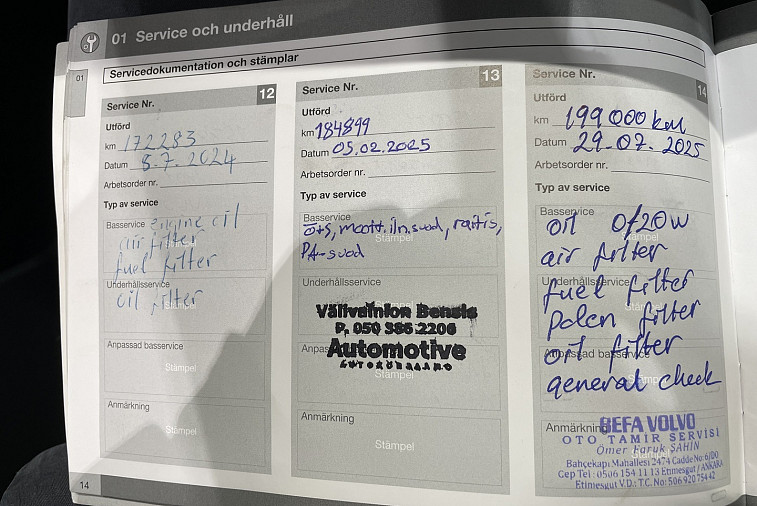 01 Service och underhåll
01
Servicedokumentation och stämplar
Service Nr. 12
Utförd
km 172283
Datum 8.7.2024
Arbetsorder nr.
Typ av service
Basservice engine oil
air filter
fuel filter
Underhållsservice
oil filter
Stämpel
Anpassad basservice
Stämpel
Anmärkning
Stämpel
14
Service Nr. 13
Utförd
km 184899
Datum 05.02.2025
Arbetsorder nr.
Typ av service
Basservice
Stämpel
Underhållsservice
Välivainion Bensis
P. 050 386 2206
Automotive
Anmärkning
Stämpel
Service Nr. 14
Utförd
km 199000 km
Datum 29.07.2025
Arbetsorder nr.
Typ av service
Basservice
oil 0/20w
Stämpel
air filter
Underhållsservice
fuel filter
polen filter
Anpassad basservice
oil filter
general check
Anmärkning
BEFA VOLVO
OTO TAMİR SERVİSİ
Ömer Faruk ŞAHİN
Bahçekapı Mahallesi 2474 Cadde No: 6/D0
Cep Tel: 0506 154 11 13 Etimesgut / ANKARA
Etimesgut V.D.: T.C. No: 506 920 754 42